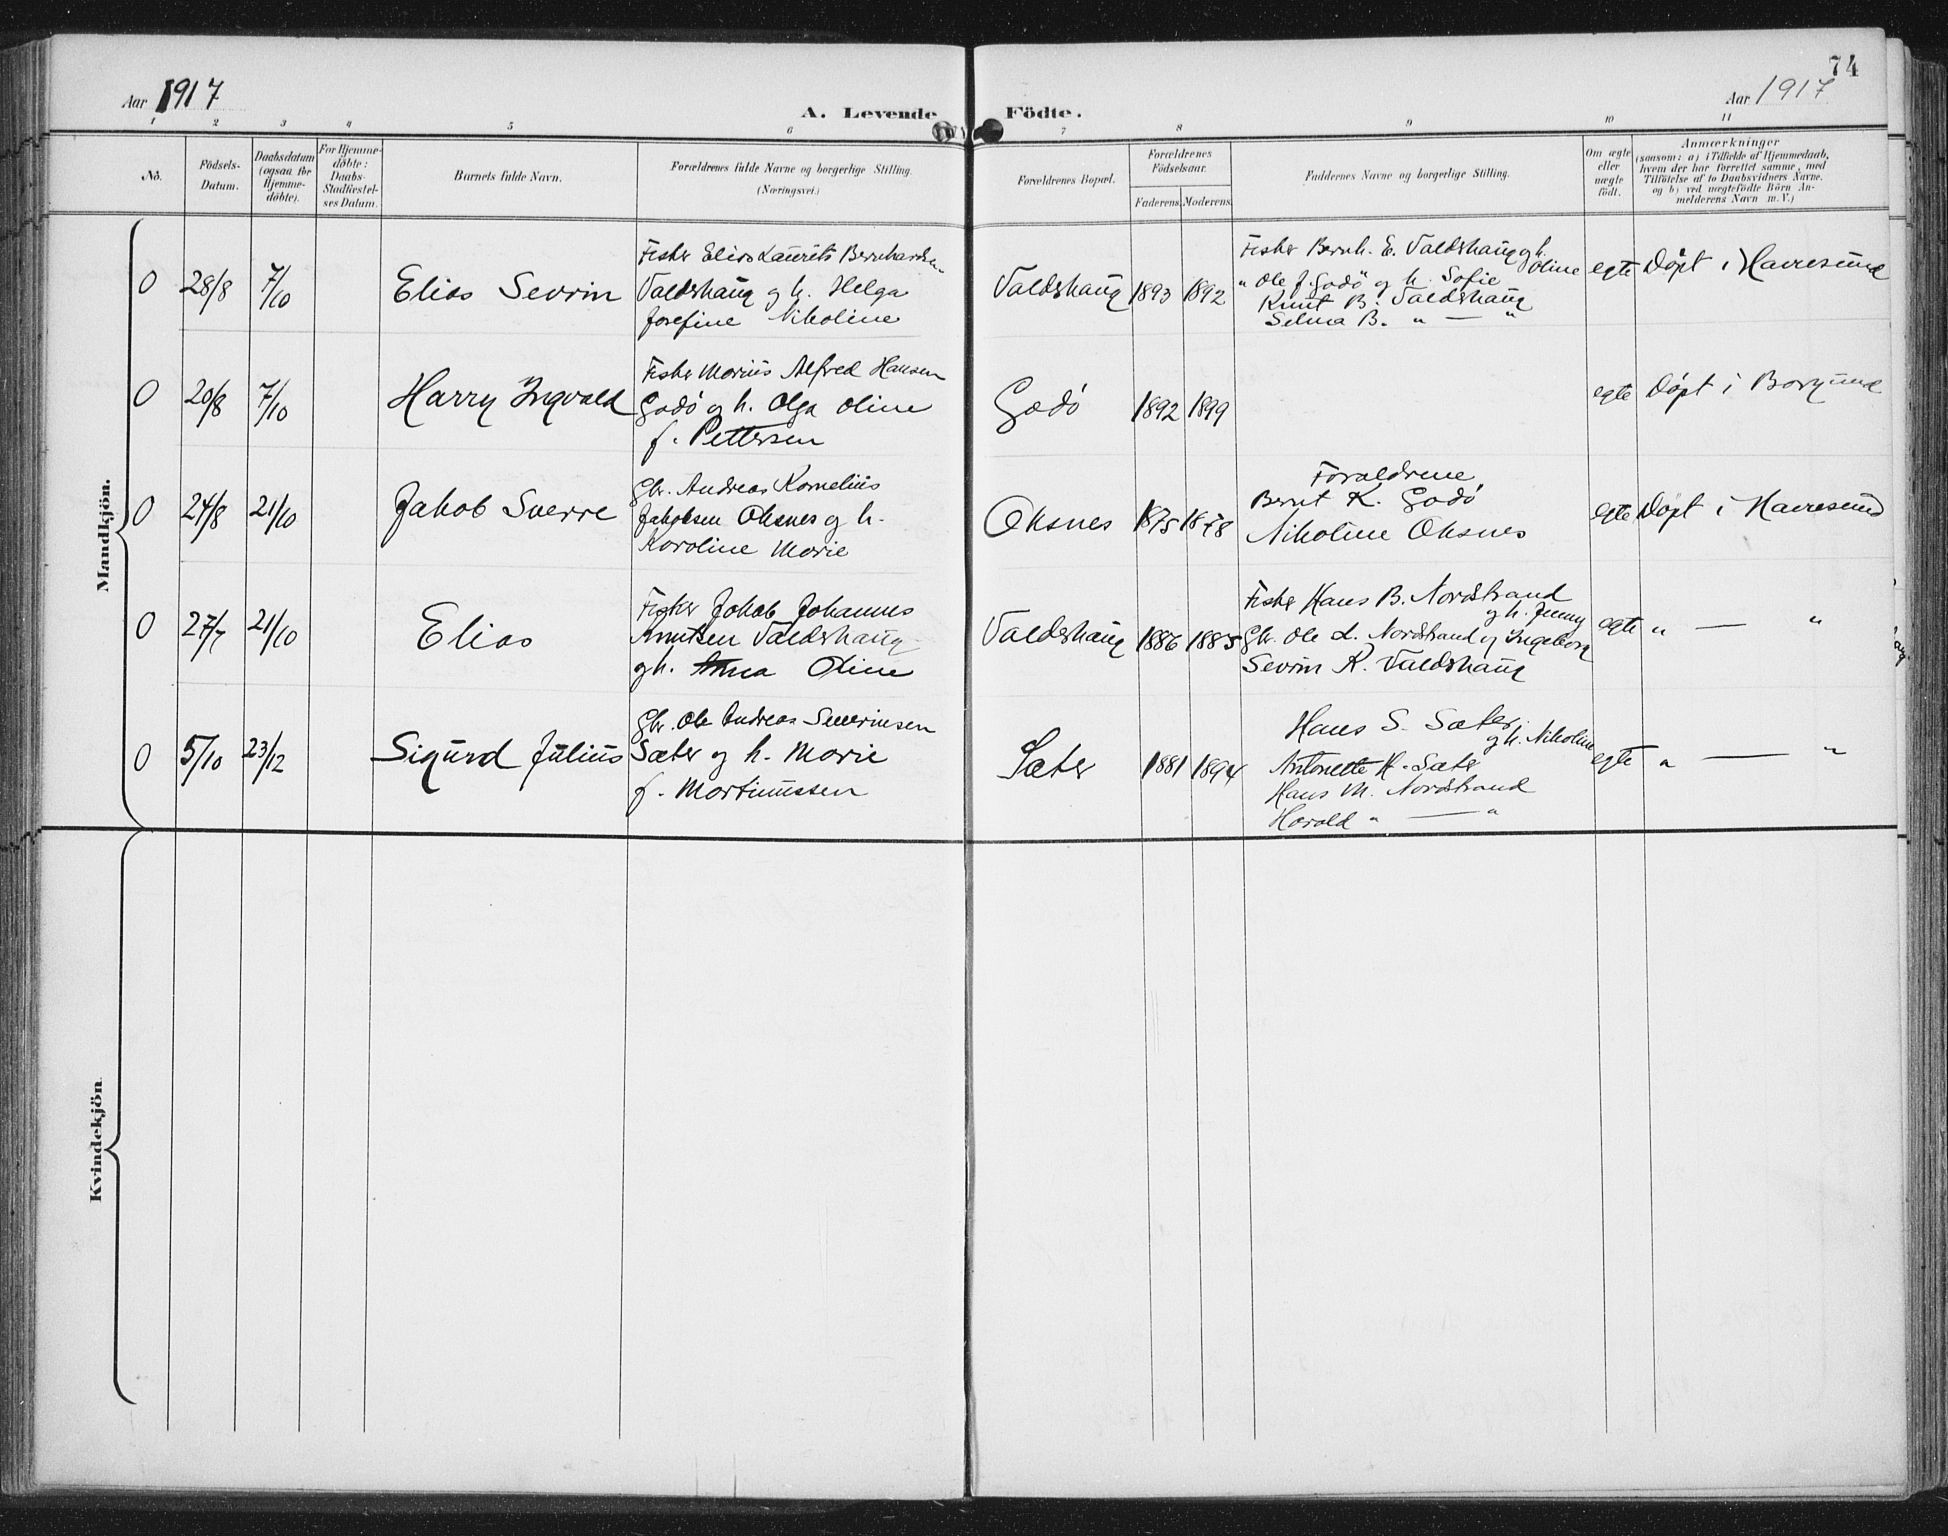 74
Aar 1917
A. Levende Födte.
Aar 1917
1 2 3 4 5 6 7 8 9 10 11
No.
Födsels-
Datum.
Daabsdatum
(ogsaa for
Hjemme-
døbte).
For Hjemme-
döbte:
Daabs-
Stadfæstel-
ses Datum.
Barnets fulde Navn.
Forældrenes fulde Navne og borgerlige Stilling.
(Næringsvei.)
Forældrenes Bopæl.
Forældrenes
Födselsaar.
Faderens. Moderens.
Faddernes Navne og borgerlige Stilling.
Om ægte
eller
uægte
født.
Anmærkninger
(saasom: a) i Tilfælde af Hjemmedaab,
hvem der har forrettet samme, med
Tilföielse af to Daabsvidners Navne.
og b) ved uægtefödte Börn An-
melderens Navn m. V.)
Mandkjön.
0 28/8 7/10 Elias Sevrin
Fisker Elias Laurits Bernhardsen
Valdshaug og h. Helga
Josefine Nikoline
Valdshaug 1893 1892
Fisker Bernh. E. Valdshaug og h.
Oline
" Ole J. Godö og h. Sofie
Knut B. Valdshaug
Selma B. " — "
egte Döpt i Havresund
0 20/8 7/10 Harry Ingvald
Fisker Marius Alfred Hansen
Godö og h. Olga Oline
f. Pettersen
Godö 1892 1899
egte Döpt i Borgund
0 24/8 21/10 Jakob Sverre
Gbr. Andreas Kornelius
Jakobsen Oksnes og h.
Karoline Marie
Oksnes 1875 1878
Foraldrene
Bernt K. Godö
Nikoline Oksnes
egte Döpt i Havresund
0 27/7 21/10 Elias
Fisker Jakob Johannes
Knutsen Valdshaug
og h. Anna Oline
Valdshaug 1886 1885
Fisker Hans B. Nordstrand
og h. Jenny
Gbr. Ole L. Nordstrand og Ingeborg
Sevrin K. Valdshaug
egte " — "
0 5/10 23/12 Sigurd Julius
Gbr. Ole Andreas Severinsen
Sæter og h. Marie
f. Martinussen
Sæter 1881 1894
Hans S. Sæter
og h. Nikoline
Antonette H. Sæter
Hans M. Nordstrand
Harald " — "
egte " — "
Kvindekjön